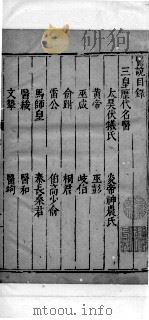 mtoou.info
醫說目錄
三皇歷代名醫
太昊伏犧氏 炎帝神農氏
黃帝 巫彭
巫咸 岐伯
俞跗 桐君
雷公 伯高少俞
馬師皇 秦長桑君
醫緩 醫和
文摯 醫竘
mtoou.info